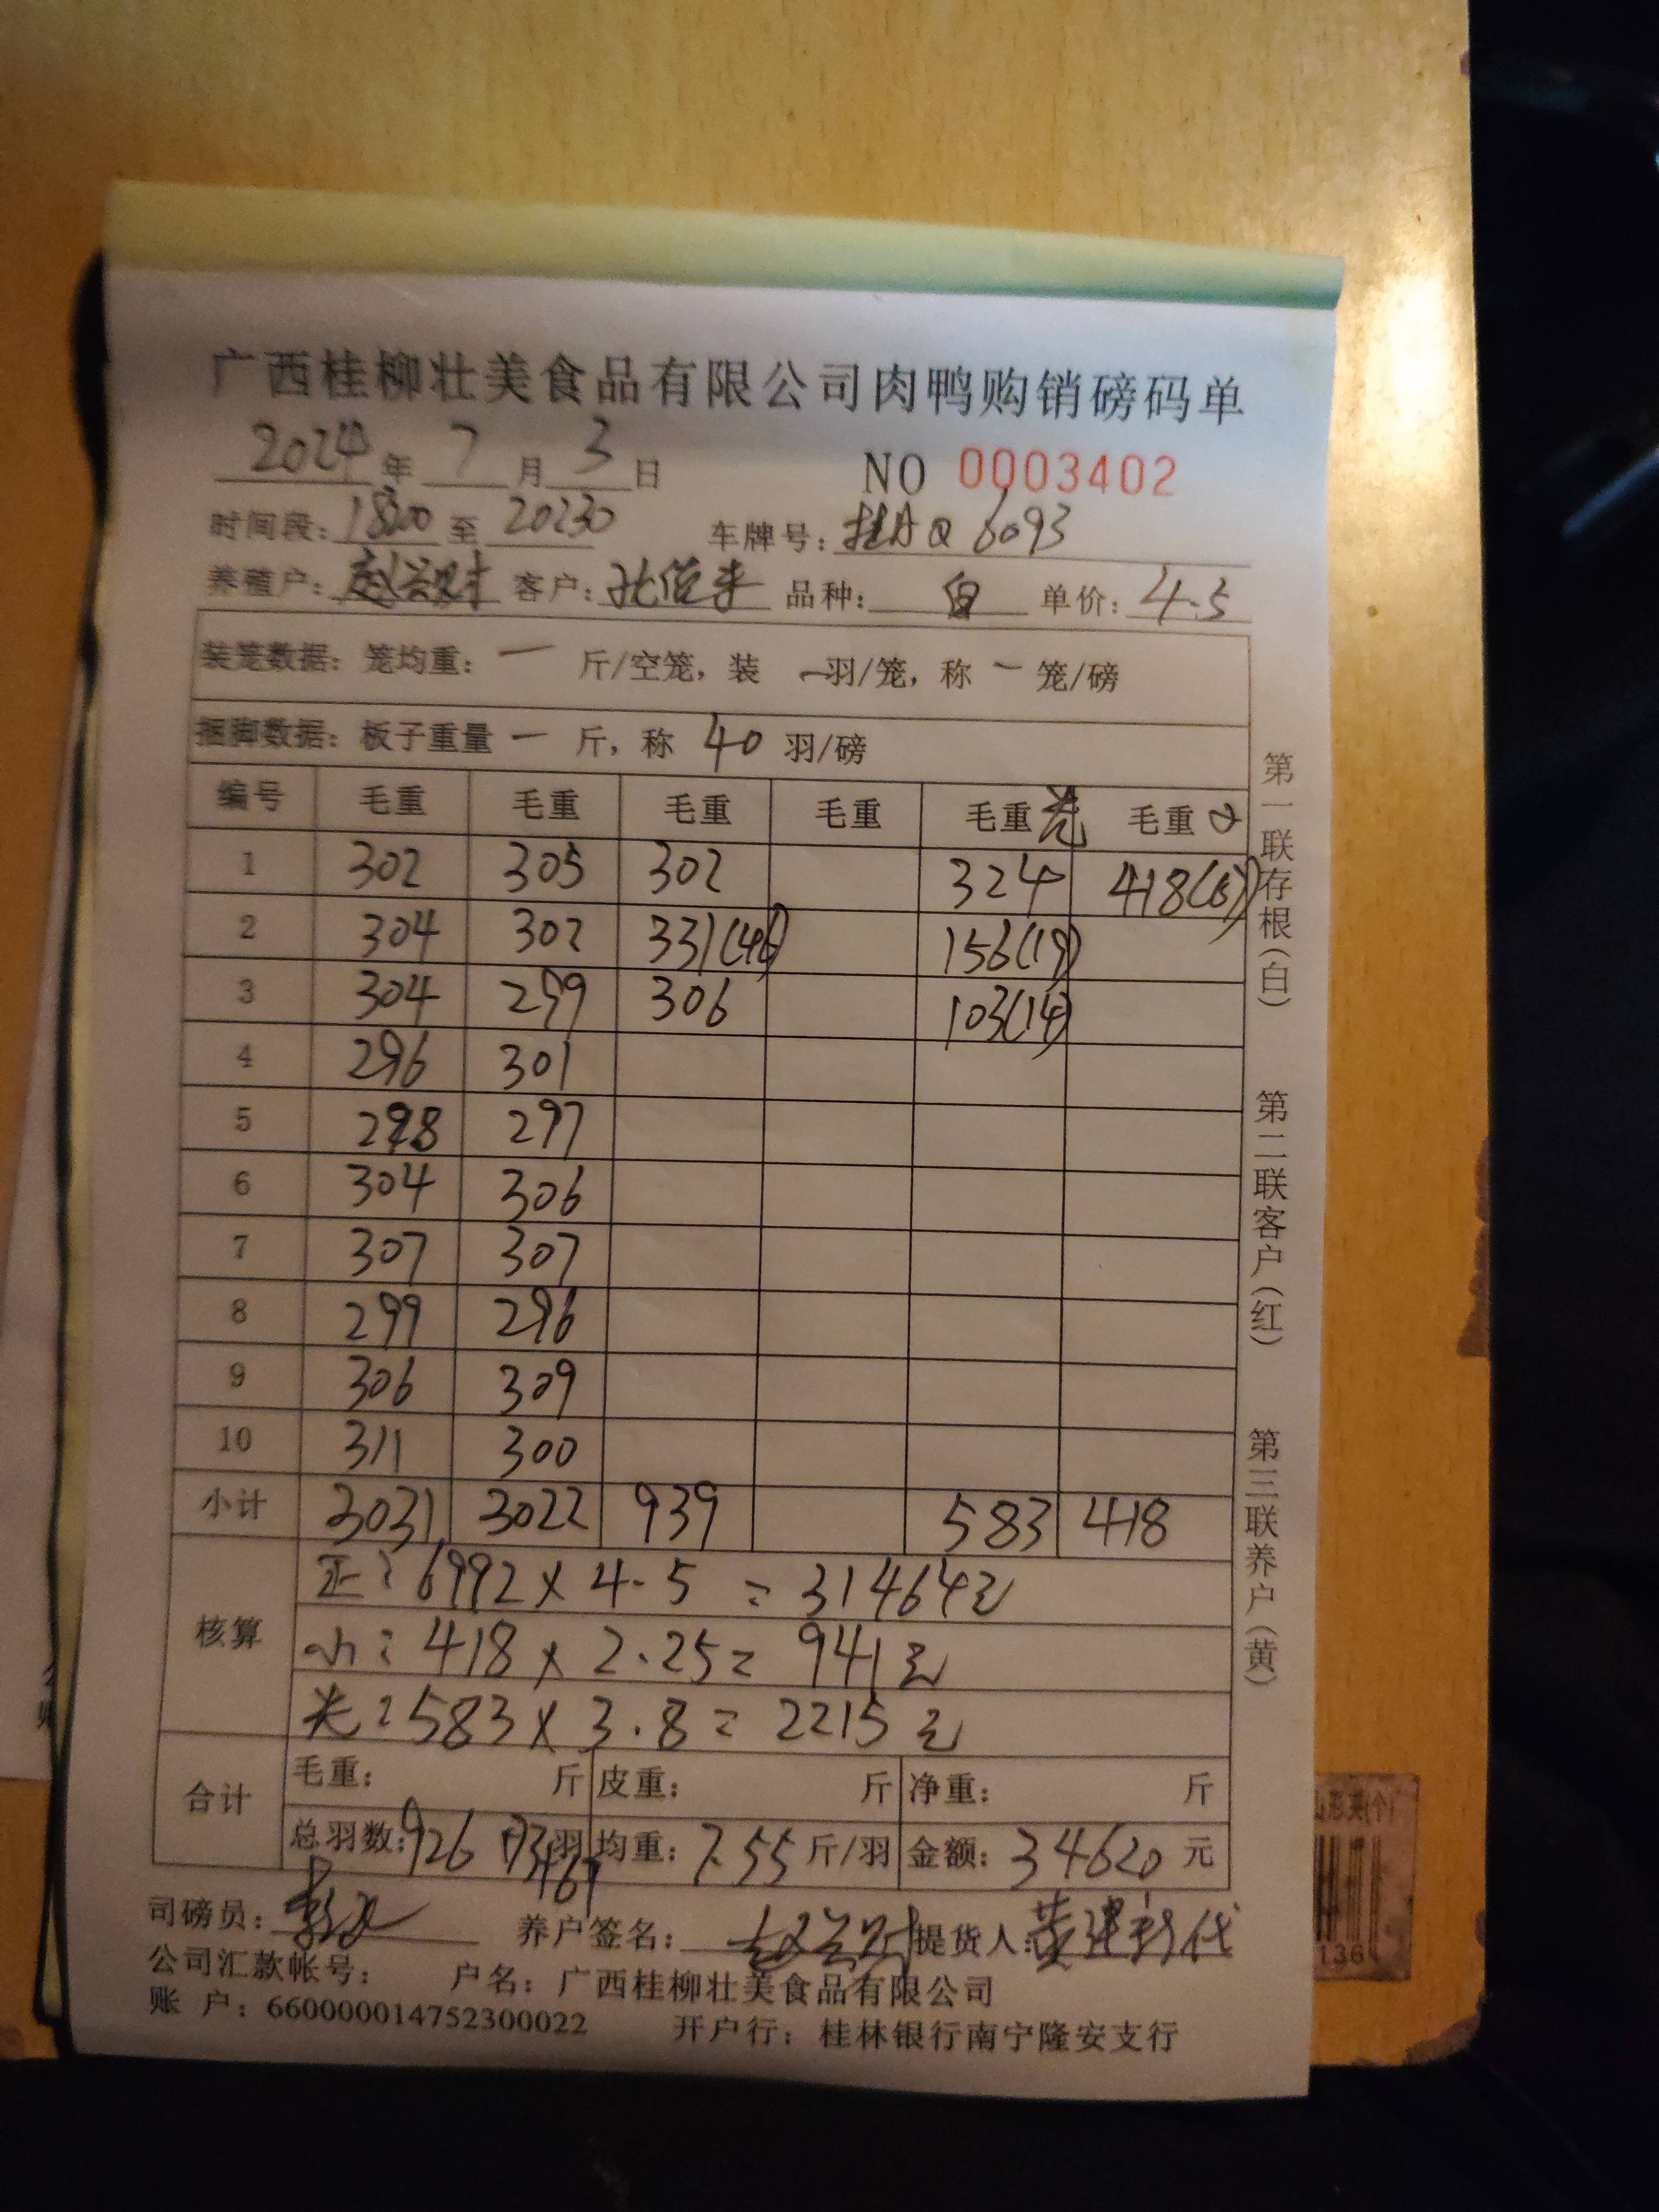 广西桂柳壮美食品有限公司肉鸭购销磅码单
2024年 7月 3日 NO 0003402
时间段: 1800 至 20230 车牌号: 桂AQ6093
养殖户: 赵兴财 客户: 品种: 白 单价: 4.5
装笼数据: 笼均重: 一 斤/空笼, 装 一羽/笼, 称 一 笼/磅
捆脚数据: 板子重量 一 斤, 称 40 羽/磅
编号 毛重 毛重 毛重 毛重 毛重光 毛重小
1 302 305 302 324 418(67)
2 304 302 331(46) 156(19)
3 304 299 306 103(14)
4 296 301
5 298 297
6 304 306
7 307 307
8 299 296
9 306 309
10 311 300
小计 3031 3022 939 583 418
核算
正: 6992×4.5=31464元
小: 418×2.25=941元
光: 583×3.8=2215元
合计
毛重: 斤 皮重: 斤 净重: 斤
总羽数: 926 73 羽 均重: 7.55 斤/羽 金额: 34620 元
167
司磅员: 养户签名: 赵兴财 提货人: 代
公司汇款帐号: 户名: 广西桂柳壮美食品有限公司
账 户: 660000014752300022 开户行: 桂林银行南宁隆安支行
第一联存根(白) 第二联客户(红) 第三联养户(黄)
136